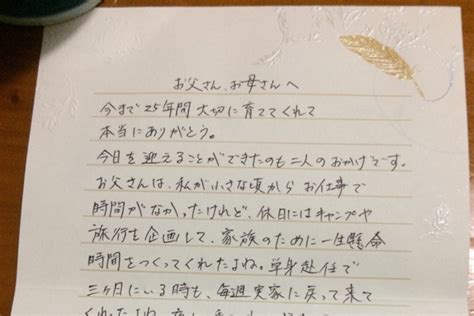 お父さん、お母さんへ
今まで25年間大切に育ててくれて
本当にありがとう。
今日を迎えることができたのも二人のおかげです。
お父さんは、私が小さな頃からお仕事で
時間がなかったけれど、休日にはキャンプや
旅行を企画して、家族のために一生懸命
時間をつくってくれたよね。単身赴任で
三ヶ月にいる時も、毎週実家に戻って来て
くれたよね。